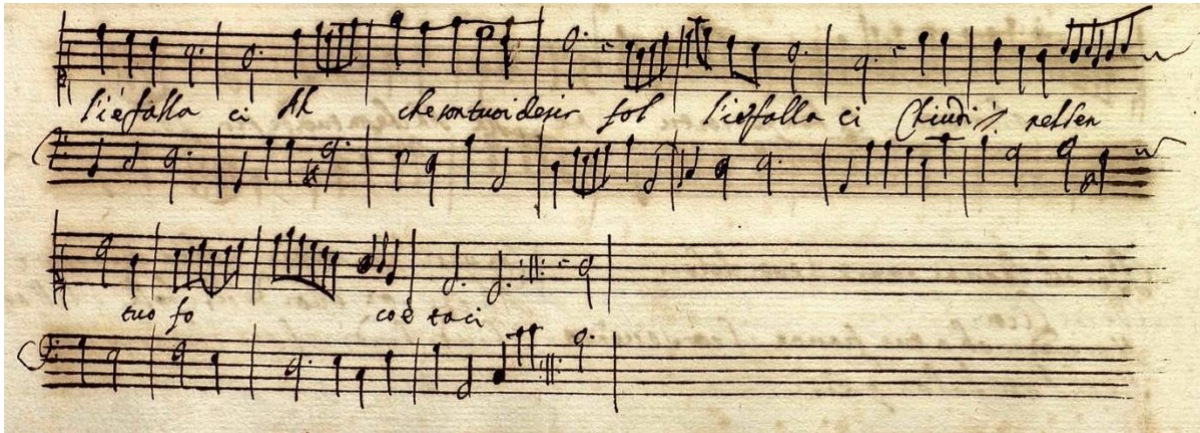 l'ie falla ci Ah che son tuoi desir fol l'ie falla ci Chiudi nel sen
tuo fo co è taci